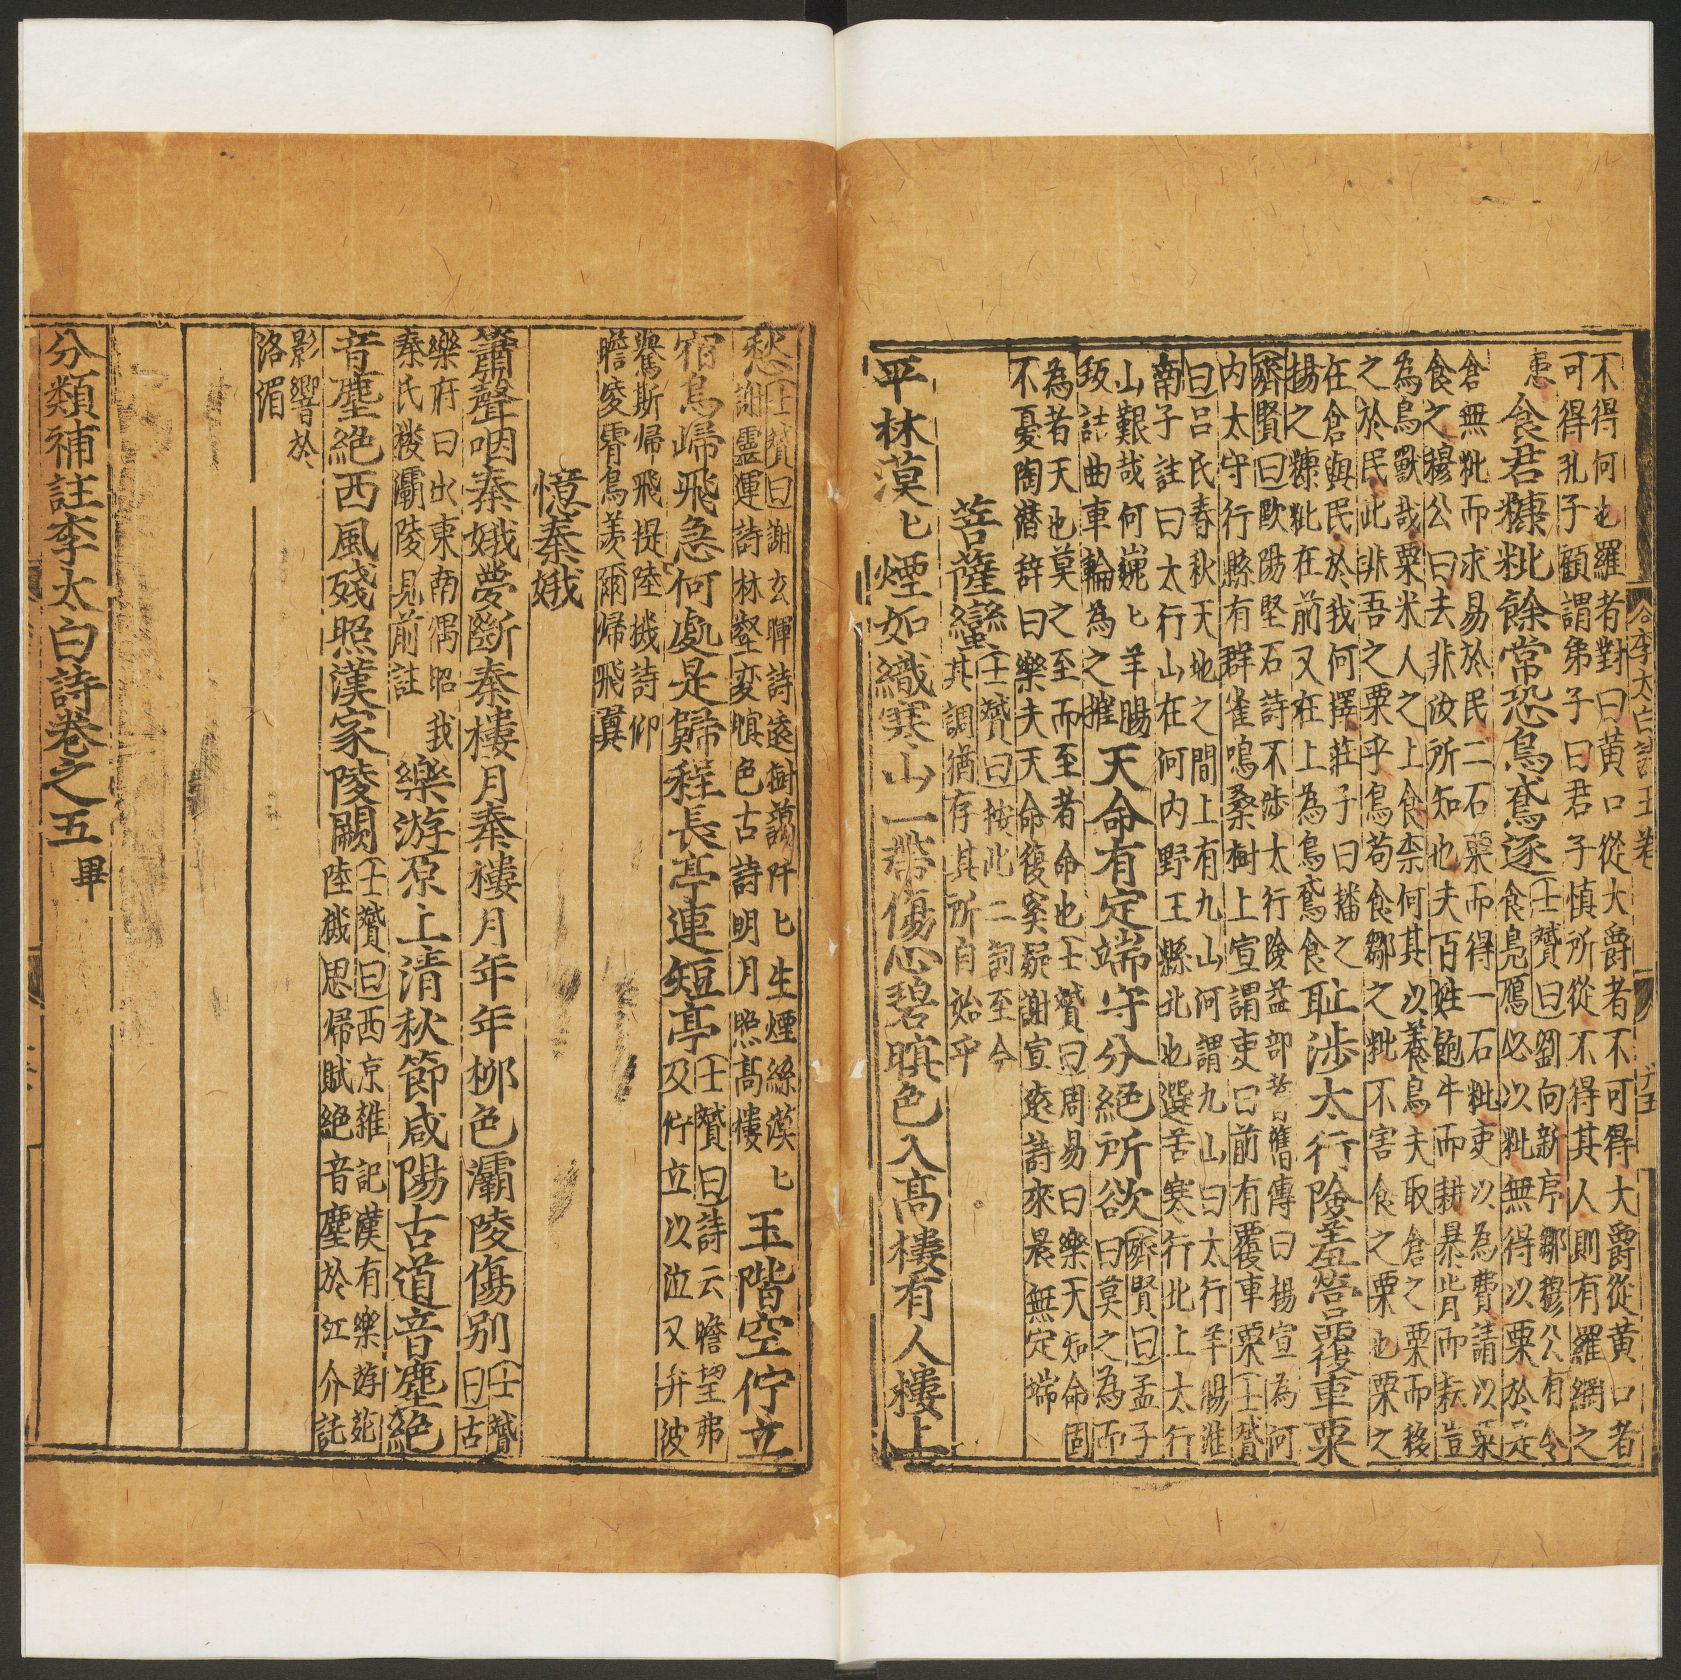 不得何也羅者對曰黃口從大爵者不可得大爵從黃口者
可得孔子顧謂弟子曰君子慎所從不得其人則有羅網之
患
食君糠粃餘常恐烏鳶逐
士贇曰劉向新序鄒穆公有令
食鳧鴈必以粃無得以粟於是
倉無粃而求易於民二石粟而得一石粃吏以為費請以粟
食之穆公曰去非汝所知也夫百姓飽牛而耕暴背而耘豈
為鳥獸哉粟米人之上食柰何其以養鳥夫取倉之粟而移
之於民此非吾之粟乎鳥苟食鄒之粃不害食之粟也粟之
在倉與民於我何擇莊子曰播之
揚之糠粃在前又在上為烏鳶食
恥涉太行險羞營覆車粟
齊賢曰歐陽堅石詩不涉太行險益部耆舊傳曰楊宣為河
內太守行縣有群雀鳴桑樹上宣謂吏曰前有覆車粟士贇
曰呂氏春秋天地之間上有九山河謂九山曰太行羊腸淮
南子註曰太行山在河內野王縣北也選苦寒行北上太行
山艱哉何巍匕羊腸
坂詰曲車輪為之摧
天命有定端守分絕所欲
齊賢曰孟子
曰莫之為而
為者天也莫之至而至者命也士贇曰周易曰樂天知命固
不憂陶潛辭曰樂夫天命復奚疑謝宣遠詩來晨無定端
菩薩蠻
士贇曰按此二詞至今
其調猶存其所自始乎
平林漠匕煙如織寒山一帶傷心碧暝色入高樓有人樓上
仝李太白詩五卷
愁
士贇曰謝玄暉詩遠樹藹阡匕生煙絲漠匕
謝靈運詩林壑変暝色古詩明月照高樓
玉階空佇立
宿鳥歸飛急何處是歸程長亭連短亭
士贇曰詩云瞻望弗
及佇立以泣又弁彼
鸒斯歸飛提陸機詩仰
瞻凌霄鳥羡爾歸飛翼
憶秦娥
簫聲咽秦娥夢斷秦樓月秦樓月年年柳色灞陵傷別
士贇
曰古
樂府曰出東南隅昭我
秦氏樓灞陵見前註
樂游原上清秋節咸陽古道音塵絕
音塵絕西風殘照漢家陵闕
士贇曰西京雜記漢有樂游苑
陸機思歸賦絕音塵於江介託
影響於
洛湄
分類補註李太白詩卷之五
畢